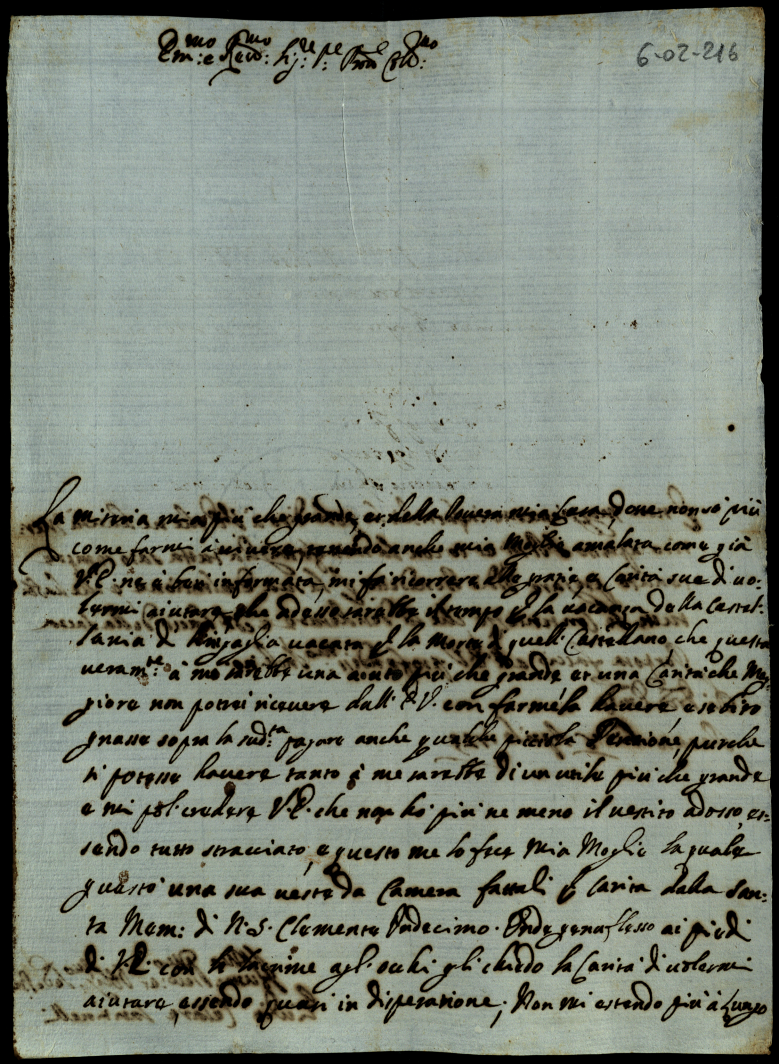 Em:mo e Rev:mo Sig:re P:re Pron Col:mo
6-02-216
La miseria mia più che grande, et della povera mia Casa, dove non sò più
come farmi à vivere, havendo anche mia Moglie amalata come già
V.E. ne è ben informata, mi fà ricorrere alle grazie e Carità sue di vo:
lermi aiutare, che adesso sarebbe il tempo p la vacanza della Castel:
lania di Sinigaglia vacata p la morte di quell. Castellano, che questa
veram:te à me sarebbe una aiuto più che grande et una Carità che Mag:
giore non potrei ricevere dall. E.V. con farmela havere e se biso
gnasse sopra la sud:ta pagare anche qualche picciola Penzione, purche
si potesse havere tanto à me sarebbe di un utile più che grande
e mi pol credere V.E. che non hò più ne meno il vestito adosso, es:
sendo tutto stracciato, e questo me lo fece Mia Moglie la quale
guastò una sua veste da Camera fattali p Carità dalla San:
ta Mem: di N.S. Clemente Undecimo. Onde genuflesso ai piedi
di V.E. con le lacrime agl. ochi gli chiedo la Carità di volermi
aiutare, essendo quasi in disperazione, Non mi estendo più à Lungo